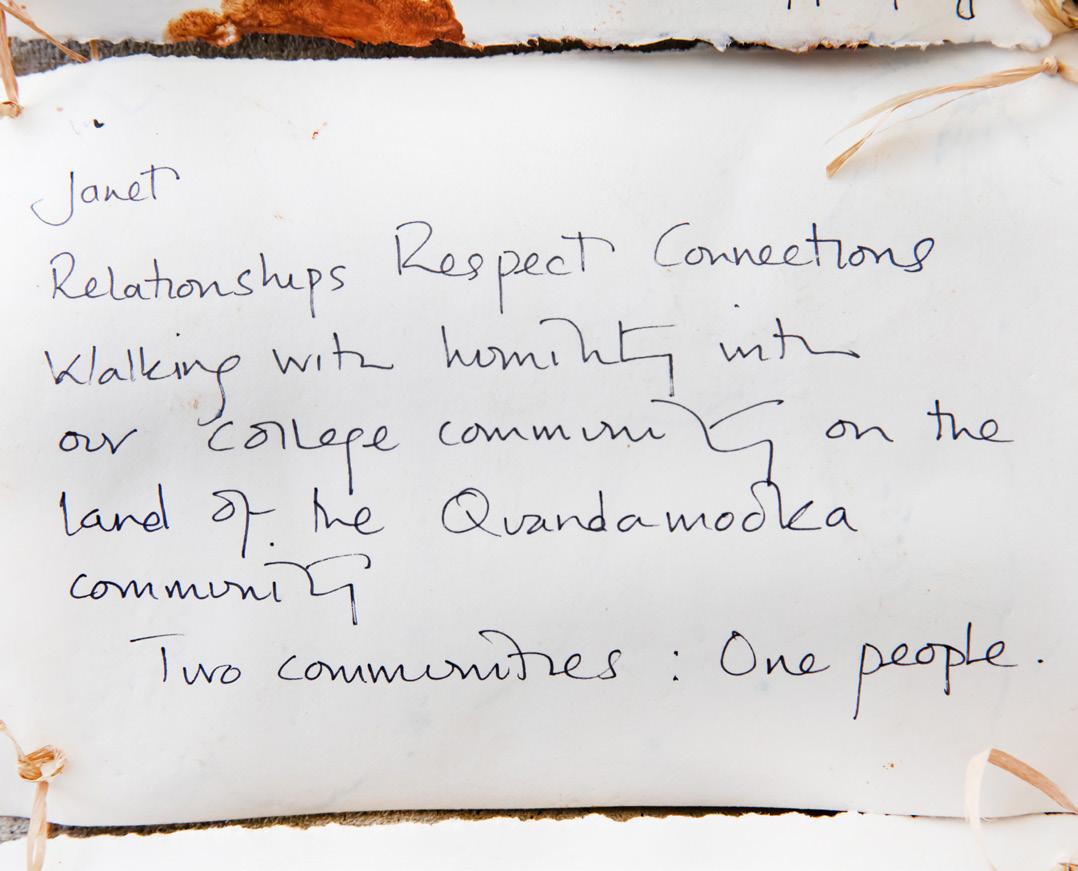 Janet
Relationships Respect Connections
Walking with humility with
our college community on the
land of the Quandamooka
community
Two communities : One people.